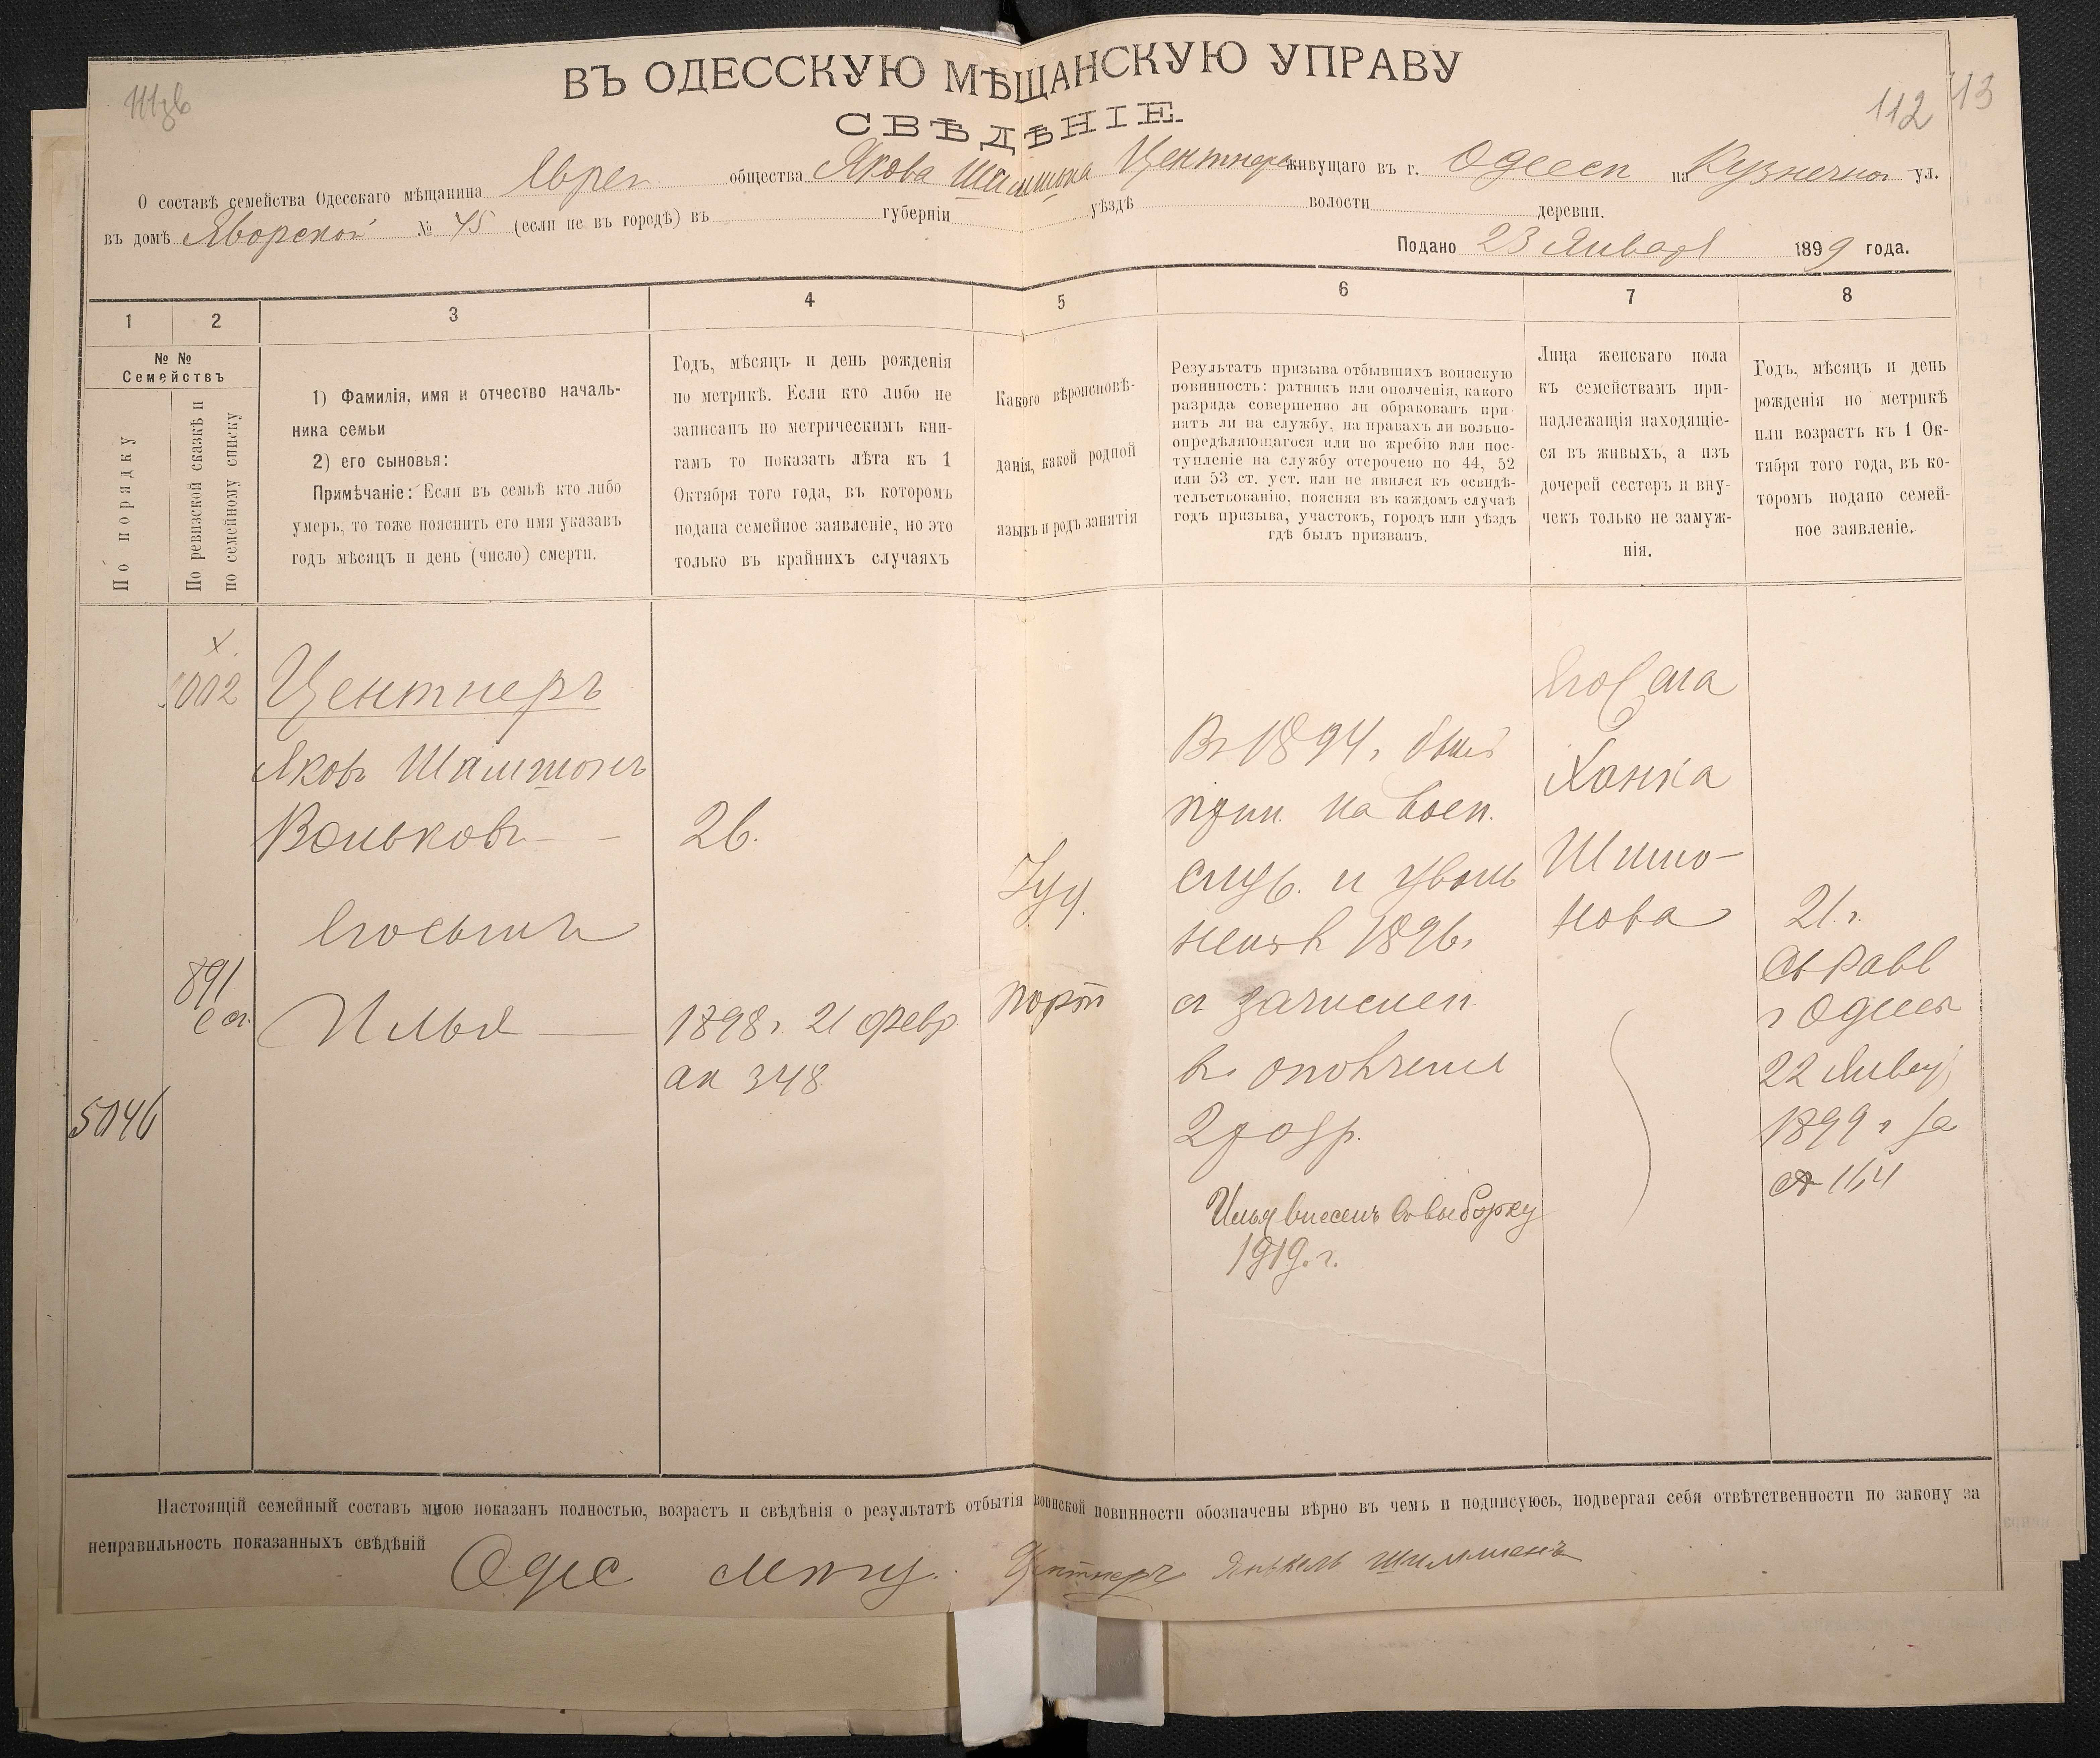 ВЪ ОДЕССКУЮ МѢЩАНСКУЮ УПРАВУ
СВѢДѢНІЕ
112
113
О составѣ семейства Одесскаго мѣщанина Еврей общества Якова Шамшона Центнера живущаго въ г. Одессѣ на Кузнечной ул.
въ домѣ Яворской № 45 (если не въ городѣ) въ губерніи уѣздѣ волости деревни.
Подано 23 Января 1899 года.
1 2 3 4 5 6 7 8
№ №
Семействъ
По порядку
По ревизской сказкѣ и
по семейному списку
1) Фамилія, имя и отчество началь-
ника семьи
2) его сыновья:
Примѣчаніе: Если въ семьѣ кто либо
умеръ, то тоже пояснить его имя указавъ
годъ мѣсяцъ и день (число) смерти.
Годъ, мѣсяцъ и день рожденія
по метрикѣ. Если кто либо не
записанъ по метрическимъ кни-
гамъ то показать лѣта къ 1
Октября того года, въ которомъ
подана семейное заявленіе, но это
только въ крайнихъ случаяхъ
Какого вѣроисповѣ-
данія, какой родной
языкъ и родъ занятія
Результатъ призыва отбывшихъ воинскую
повинность: ратникъ или ополченія, какого
разряда совершенно ли обракованъ при-
нятъ ли на службу, на правахъ ли вольно-
опредѣляющагося или по жребію или пос-
тупленіе на службу отсрочено по 44, 52
или 53 ст. уст. или не явился къ освидѣ-
тельствованію, поясняя въ каждомъ случаѣ
годъ призыва, участокъ, городъ или уѣздъ
гдѣ былъ призванъ.
Лица женскаго пола
къ семействамъ при-
надлежащія находящіе-
ся въ живыхъ, а изъ
дочерей сестеръ и вну-
чекъ только не замуж-
нія.
Годъ, мѣсяцъ и день
рожденія по метрикѣ
или возрастъ къ 1 Ок-
тября того года, въ ко-
торомъ подано семей-
ное заявленіе.
002
Центнеръ
Яковъ Шамшонъ
Воньковъ
26.
Его сынъ
891
Илья
1898 г. 21 февр.
ак 348
5046
Іуд.
порт
Въ 1894 г. былъ
прин. на воен.
служ. и уволь
ненъ въ 1896 г.
и зачислен.
въ ополченіе
2 разр.
Илья внесенъ въ выборку
1919. г.
Его жена
Ханка
Шимо-
нова
21 г.
Св Равв
г Одессы
22 Январ
1899 г за
№ 164
Настоящій семейный составъ мною показанъ полностью, возрастъ и свѣдѣнія о результатѣ отбытія воинской повинности обозначены вѣрно въ чемъ и подписуюсь, подвергая себя отвѣтственности по закону за
неправильность показанныхъ свѣдѣній
Одес мѣщ. Центнеръ Янькель Шимшонъ